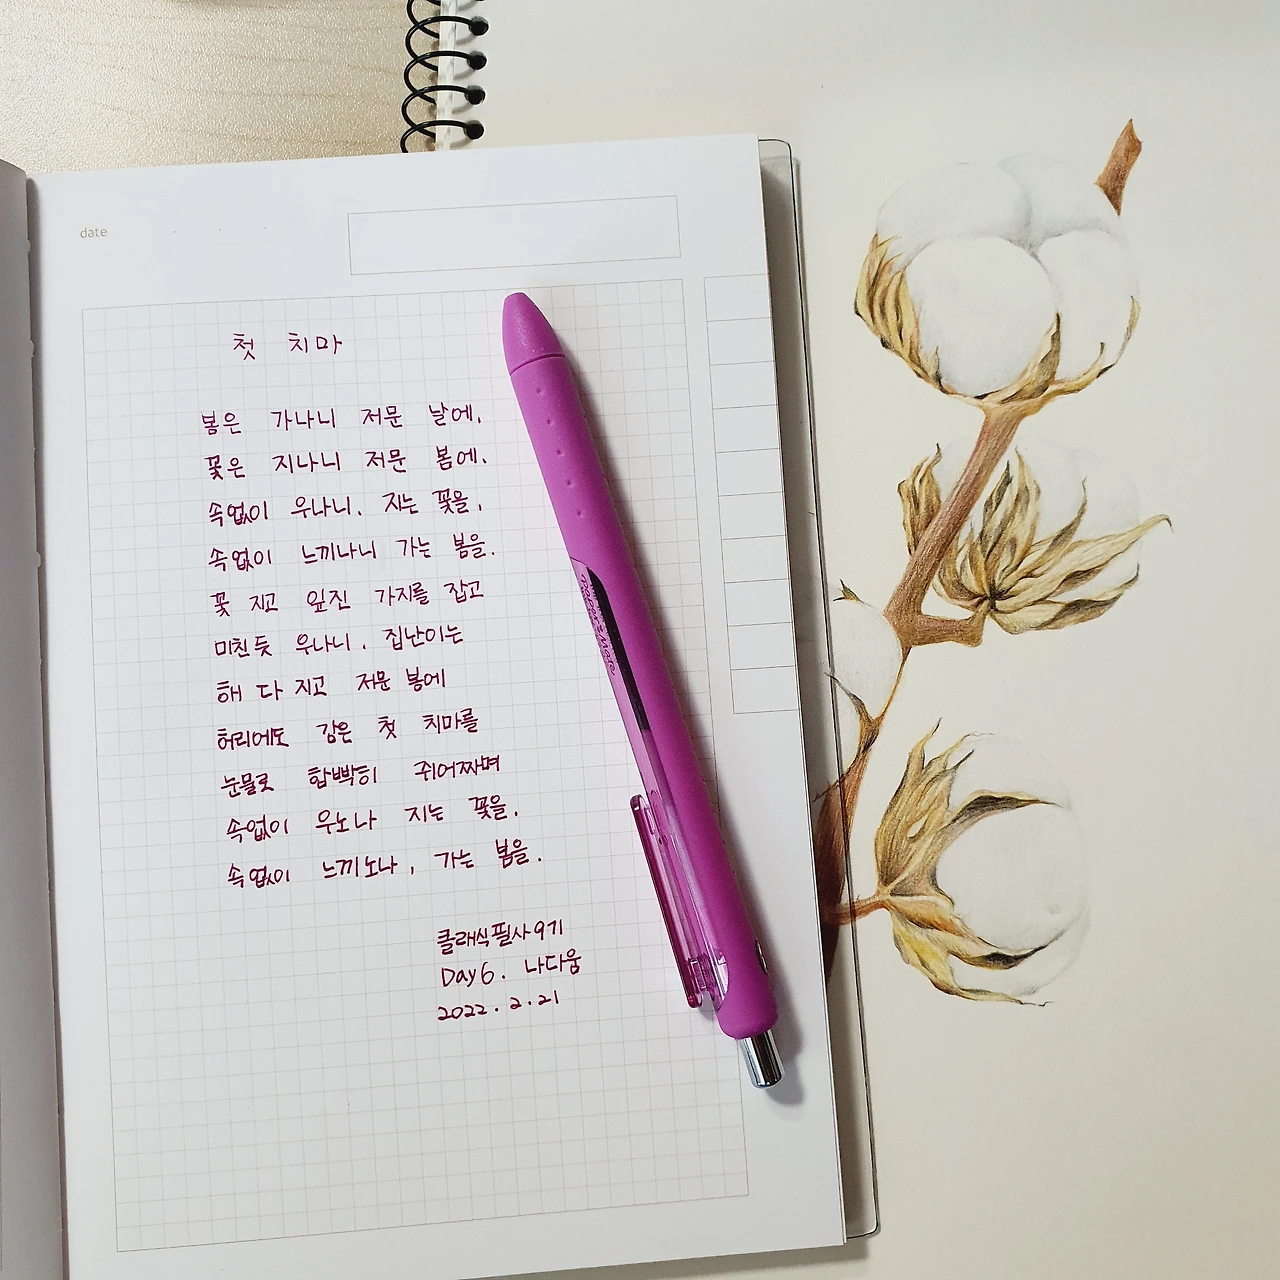 date
첫 치마
봄은 가나니 저문 날에,
꽃은 지나니 저문 봄에.
속없이 우나니, 지는 꽃을,
속없이 느끼나니 가는 봄을.
꽃 지고 잎진 가지를 잡고
미친듯 우나니, 집난이는
해 다 지고 저문 봄에
허리에도 감은 첫 치마를
눈물로 함빡히 쥐어짜며
속없이 우노나 지는 꽃을,
속없이 느끼노나, 가는 봄을.
클래식필사9기
Day6. 나다움
2022.2.21
Paper:Mate